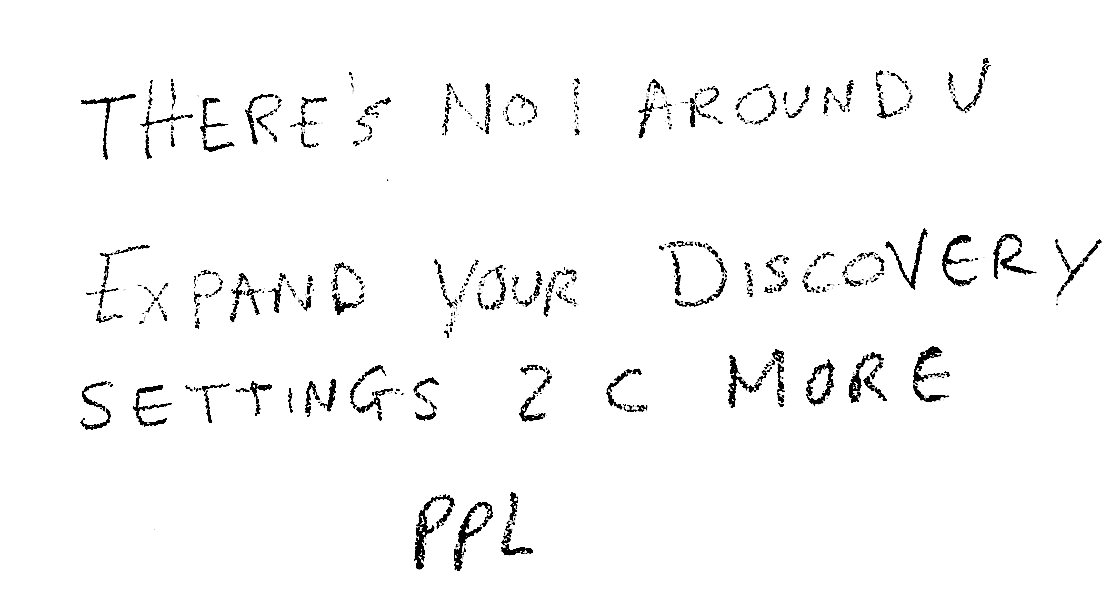 THERE'S NO 1 AROUND U
EXPAND YOUR DISCOVERY
SETTINGS 2 C MORE
PPL